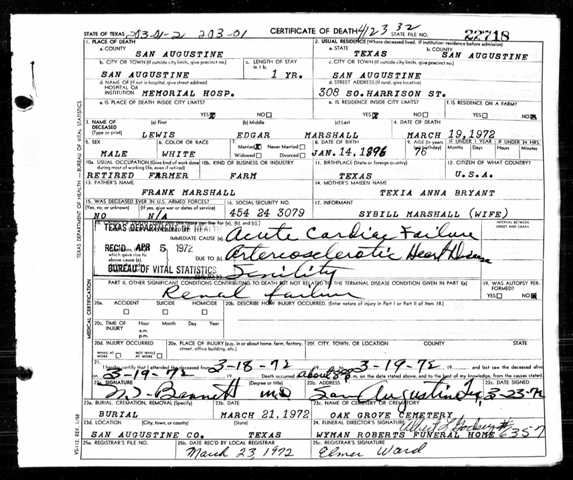 STATE OF TEXAS 203-01-2 203-01 CERTIFICATE OF DEATH 412332 STATE FILE NO. 22718
1. PLACE OF DEATH 2. USUAL RESIDENCE (Where deceased lived. If institution: residence before admission)
a. COUNTY SAN AUGUSTINE a. STATE TEXAS b. COUNTY SAN AUGUSTINE
b. CITY OR TOWN (If outside city limits, give precinct no.) c. LENGTH OF STAY c. CITY OR TOWN (If outside city limits, give precinct no.)
SAN AUGUSTINE 1 YR. SAN AUGUSTINE
d. NAME OF (If not in hospital, give street address) HOSPITAL OR INSTITUTION MEMORIAL HOSP. 308 SO. HARRISON ST.
e. IS PLACE OF DEATH INSIDE CITY LIMITS? e. IS RESIDENCE INSIDE CITY LIMITS? f. IS RESIDENCE ON A FARM?
YES NO YES NO YES NO
3. NAME OF DECEASED (Type or print) (a) First (b) Middle (c) Last 4. DATE OF DEATH
LEWIS EDGAR MARSHALL MARCH 19,1972
5. SEX 6. COLOR OR RACE 7. Married Never Married Widowed Divorced 8. DATE OF BIRTH 9. AGE (In years IF UNDER 1 YEAR IF UNDER 24 HRS.
MALE WHITE JAN.14,1896 76
10a. USUAL OCCUPATION (Give kind of work done 10b. KIND OF BUSINESS OR INDUSTRY 11. BIRTHPLACE (State or foreign country) 12. CITIZEN OF WHAT COUNTRY?
RETIRED FARMER FARM TEXAS U.S.A.
13. FATHER'S NAME 14. MOTHER'S MAIDEN NAME
FRANK MARSHALL TEXIA ANNA BRYANT
15. WAS DECEASED EVER IN U.S. ARMED FORCES? 16. SOCIAL SECURITY NO. 17. INFORMANT
(Yes, no, or unknown) (If yes, give war or dates of service)
NO N/A 454 24 3079 SYBILL MARSHALL (WIFE)
TEXAS DEPARTMENT OF HEALTH
IMMEDIATE CAUSE (a) Acute Cardiac Failure
REC'D APR 5 1972 DUE TO (b) Arterosclerotic Heart Disease
BUREAU OF VITAL STATISTICS Senility
PART II. OTHER SIGNIFICANT CONDITIONS CONTRIBUTING TO DEATH BUT NOT RELATED TO THE TERMINAL DISEASE CONDITION GIVEN IN PART I(a) 19. WAS AUTOPSY PERFORMED?
Renal failure YES NO
20a. ACCIDENT SUICIDE HOMICIDE 20b. DESCRIBE HOW INJURY OCCURRED. (Enter nature of injury in Part I or Part II of item 18.)
20c. TIME OF INJURY Hour Month Day Year
20d. INJURY OCCURRED 20e. PLACE OF INJURY (e.g., in or about home, farm, factory, street, office building, etc.) 20f. CITY, TOWN, OR LOCATION COUNTY STATE
WHILE AT WORK NOT WHILE AT WORK
21. I hereby certify that I attended the deceased from 3-18-72 3-19-72
3-19-72 Death occurred about on the date stated above, and to the best of my knowledge, from the causes stated.
22a. SIGNATURE (Degree or title) 22b. ADDRESS 22c. DATE SIGNED
Bennett MD San Augustine, Tx 3-23-72
23a. BURIAL, CREMATION, REMOVAL (Specify) 23b. DATE 23c. NAME OF CEMETERY OR CREMATORY
BURIAL MARCH 21,1972 OAK GROVE CEMETERY
23d. LOCATION (City, town, or county) (State) 24. FUNERAL DIRECTOR'S SIGNATURE
SAN AUGUSTINE CO. TEXAS WYMAN ROBERTS FUNERAL HOME 6357
25a. REGISTRAR'S FILE NO. 25b. DATE REC'D BY LOCAL REGISTRAR 25c. REGISTRAR'S SIGNATURE
March 23, 1972 Elmer Ward
TEXAS DEPARTMENT OF HEALTH — BUREAU OF VITAL STATISTICS
MEDICAL CERTIFICATION